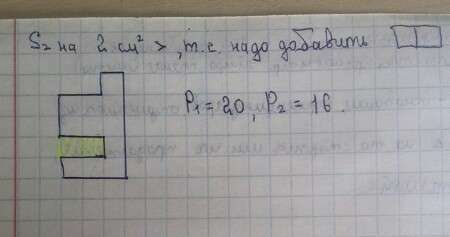 S₂ на 2 см² >, т.е. надо добавить
P₁ = 20, P₂ = 16.